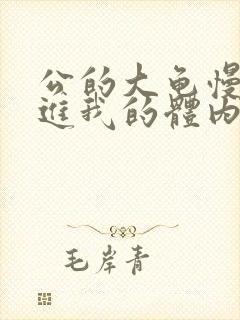 公的大龟慢
进我的體内
毛岸青